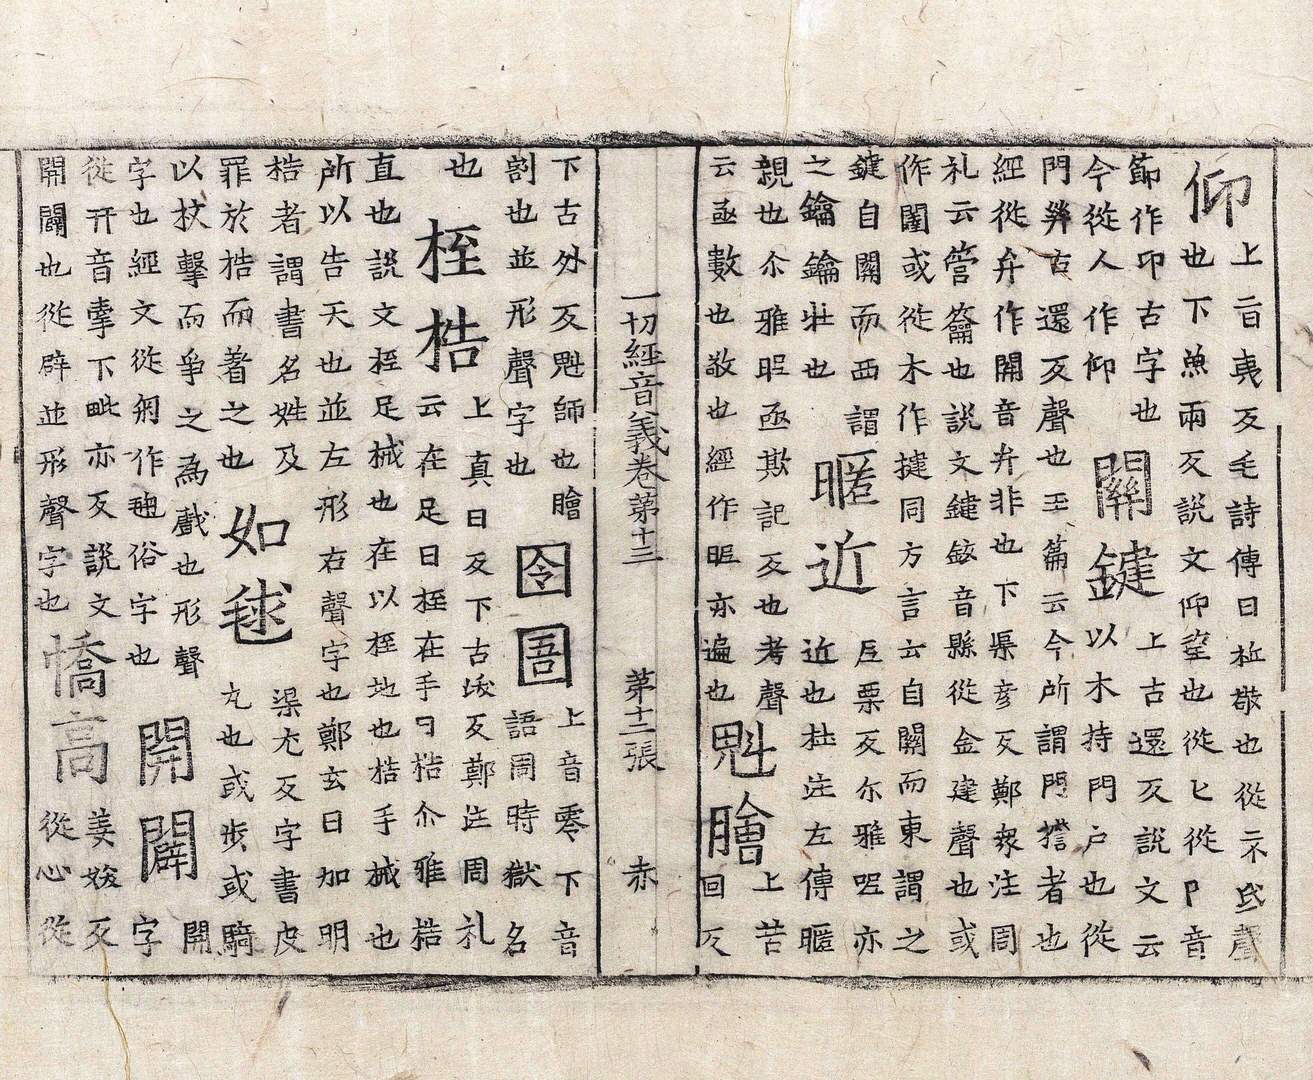 仰 上旨夷反毛詩傳曰祗敬也從示氐聲
也下魚兩反說文仰望也從匕從卪音
節作卬古字也 關鍵 上古還反說文云
今從人作仰 以木持門户也從
門 古還反聲也玉篇云今所謂門 者也
經從弁作開音弁非也下渠彦反鄭衆注周
礼云管籥也說文鍵鉉音縣從金建聲也或
作 或從木作揵同方言云自關而東謂之
鍵自關而西謂 暱近 尼栗反尔雅昵亦
之鑰鑰壯也 近也杜注左傳暱
親也尒雅昵亟欺記反也考聲 魁膾 上苦
云亟數也敬也經作昵亦遍也 回反
一切經音義卷第十三 第十二張 赤
下古外反魁師也膾 囹圄 上音零下音
割也並形聲字也 語周時獄名
也 桎梏 上真日反下古沃反鄭注周礼
云在足曰桎在手曰梏尒雅梏
直也説文桎足械也在以桎地也梏手械也
所以告天也並左形右聲字也鄭玄曰加明
梏者謂書名姓及 如毬 渠尤反字書皮
罪於梏而著之也 丸也或步或騎
以杖擊而爭之為戲也形聲 開闢 開
字也經文從 作毱俗字也 字
從幵音牽下毗亦反説文 憍高 姜妖反
開闢也從辟並形聲字也 從心從